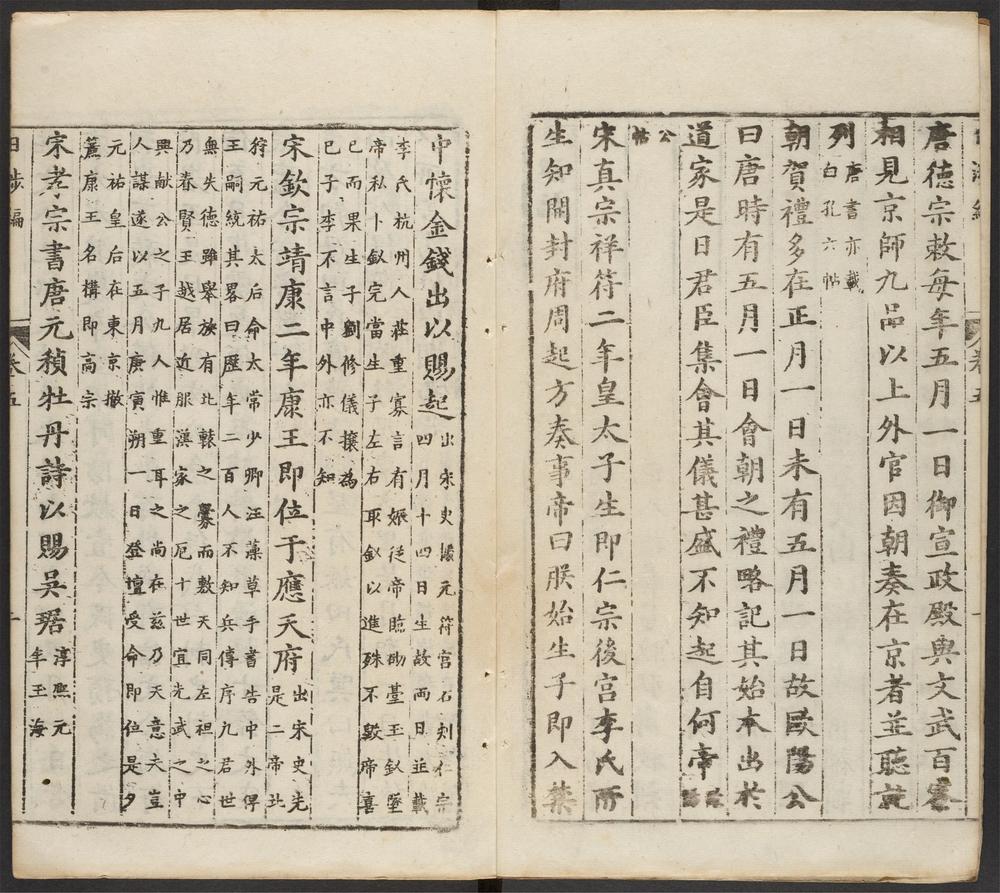 卷五
唐德宗敕每年五月一日御宣政殿與文武百寮
相見京師九品以上外官因朝奏在京者並聽就
列唐書亦載
白孔六帖
朝賀禮多在正月一日未有五月一日故歐陽公
曰唐時有五月一日會朝之禮略記其始本出於
道家是日君臣集會其儀甚盛不知起自何帝
公帖
宋真宗祥符二年皇太子生即仁宗後宮李氏所
生知開封府周起方奏事帝曰朕始生子即入禁
中懷金錢出以賜起出宋史據元符宮石刻仁宗
四月十四日生故兩日並載
李氏杭州人莊重寡言有娠從帝臨砌臺玉釵墜
帝私卜釵完當生子左右取釵以進殊不毀帝喜
已而果生子劉修儀攘為
己子李不言中外亦不知
宋欽宗靖康二年康王即位于應天府出宋史先
是二帝北
狩元祐太后命太常少卿汪藻草手書告中外俾
王嗣統其畧曰歷年二百人不知兵傳序九君世
無失德雖舉族有北轅之釁而敷天同左袒之心
乃眷賢王越居近服漢家之厄十世宜光武之中
興献公之子九人惟重耳之尚在兹乃天意夫豈
人謀遂以五月庚寅朔一日登壇受命即位是夕
元祐皇后在東京撤
簾康王名構即高宗
宋孝宗書唐元稹牡丹詩以賜吳琚淳熙元
年玉海
日涉編
卷五